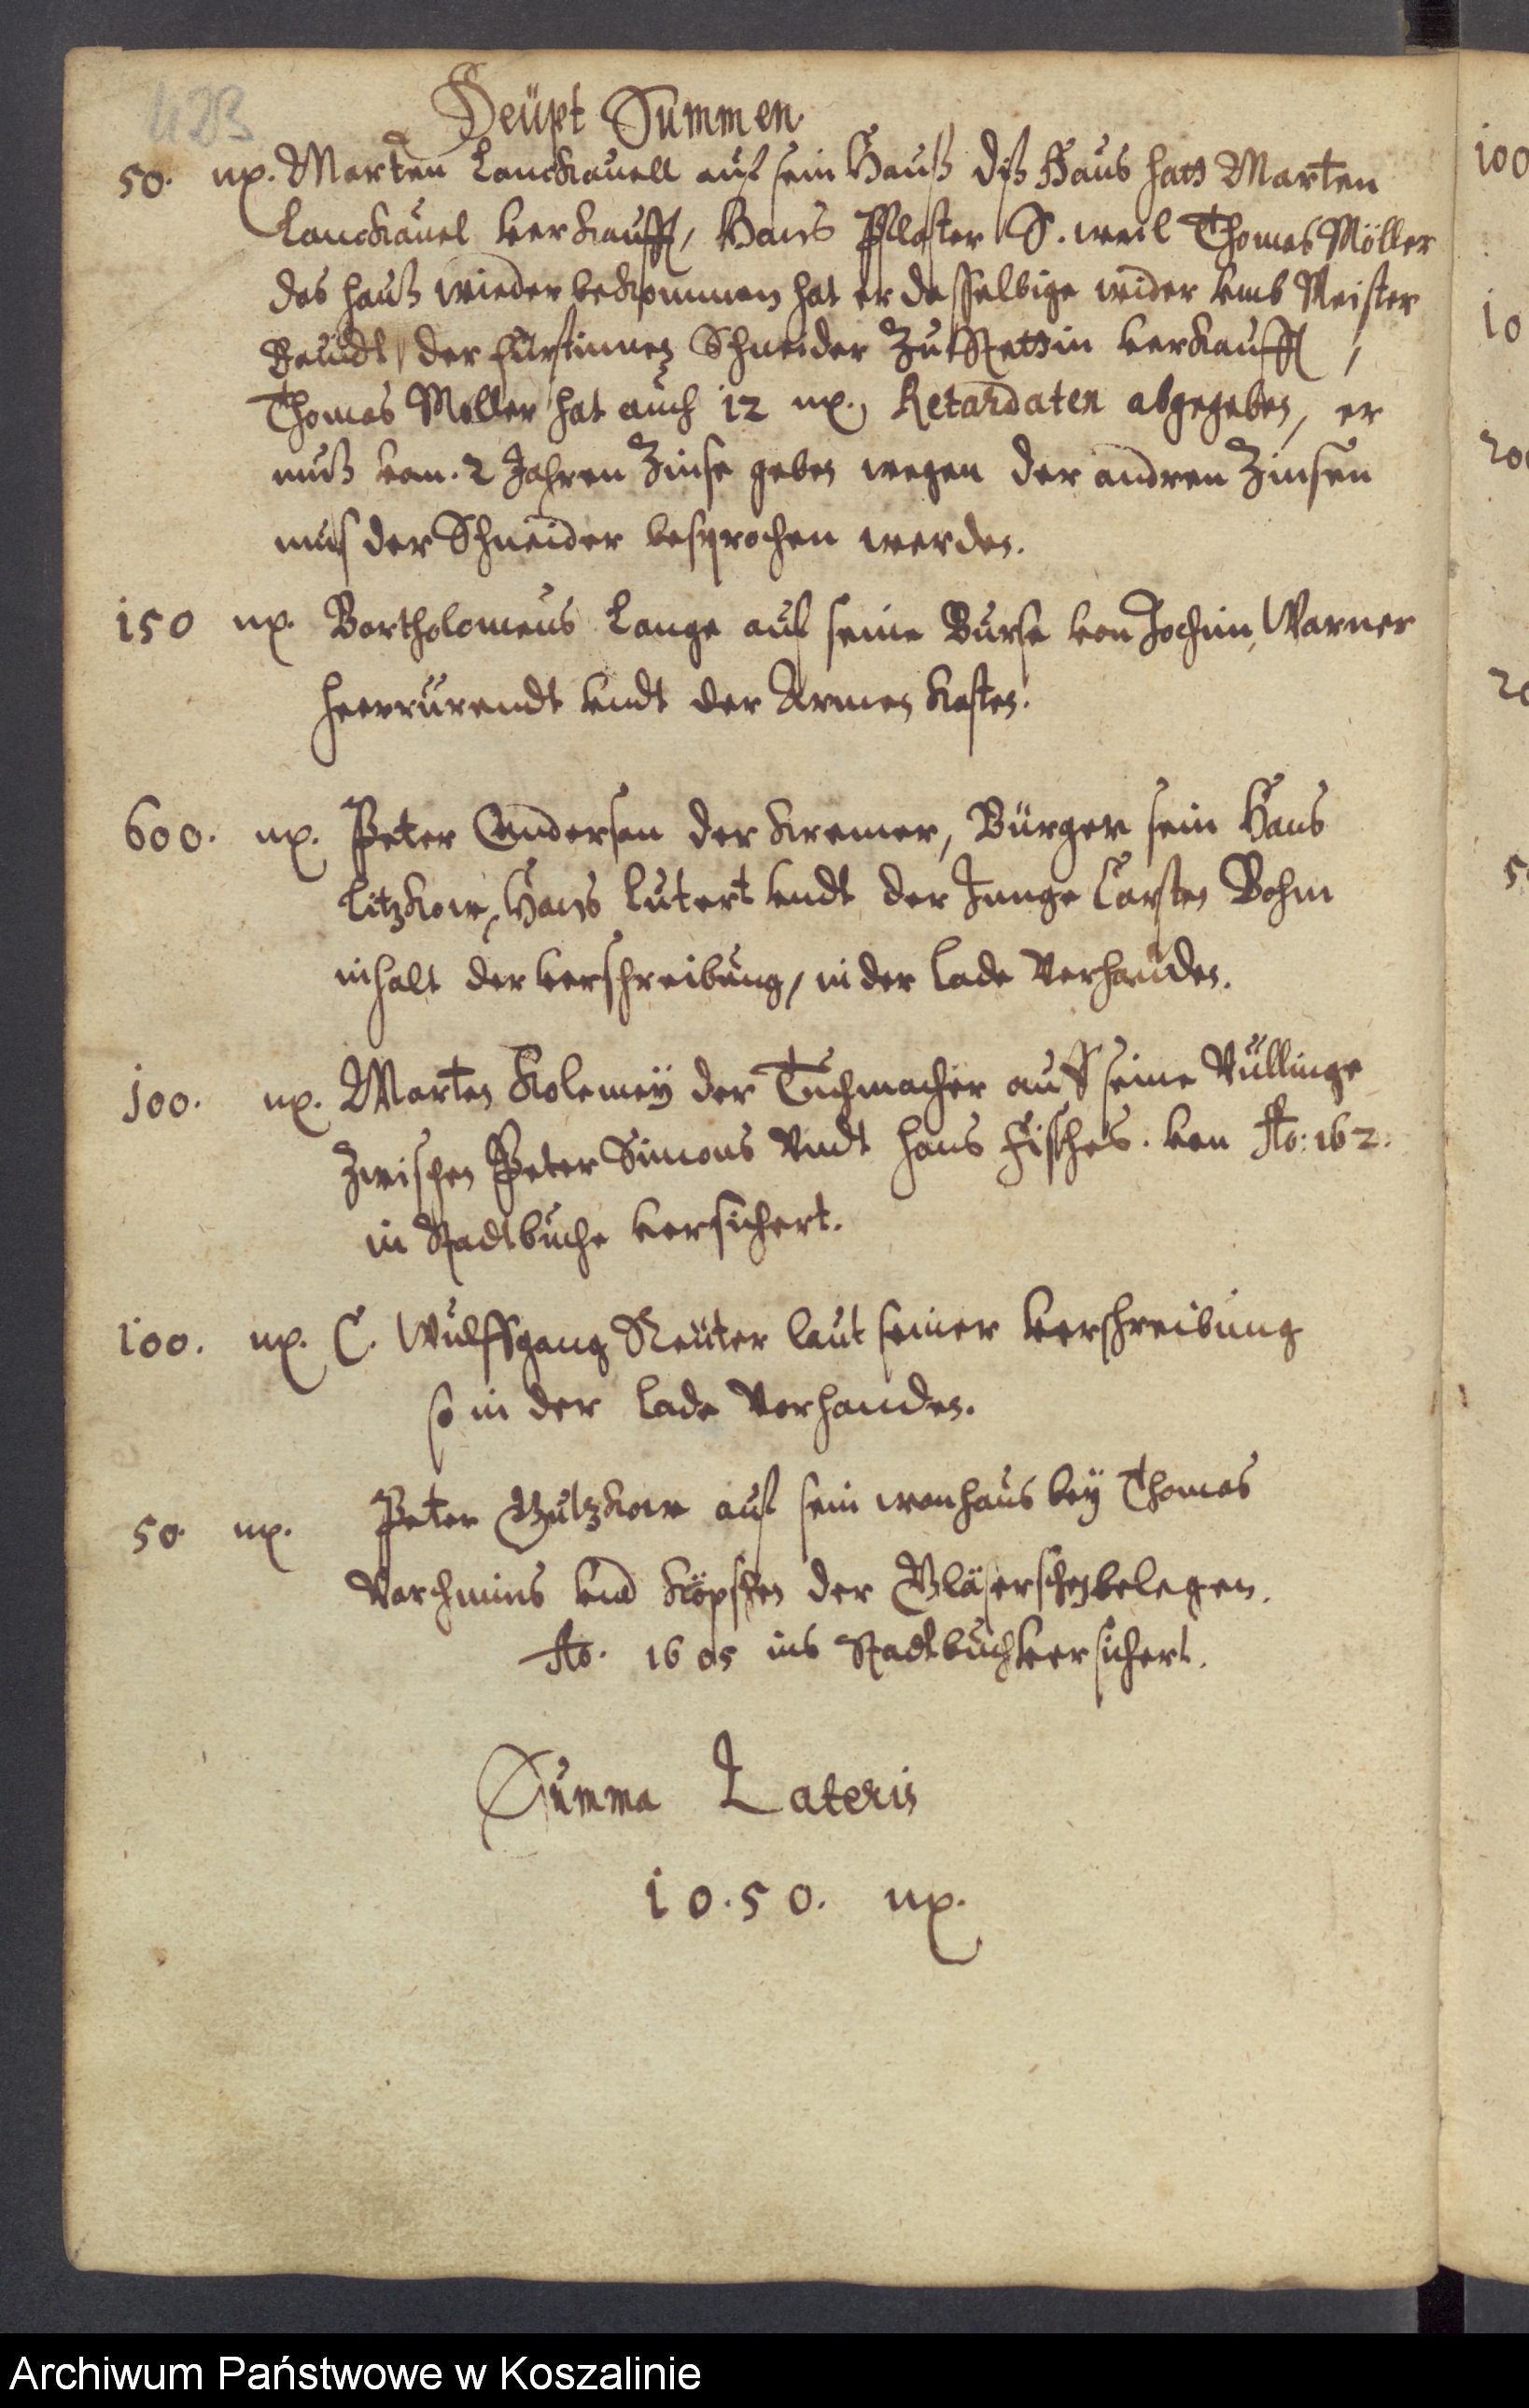 423
Heüpt Summen
50. mp. Marten Lanckauell auf sein Hauß diß Haus hatt Marten
Lanckauel verkaufft, Hans Pflaster S. weil Thomas Möller
das hauß wieder bekommen hat er dasselbige wider vmb Meister
der fürstinnen Schneider Zu Stettin verkaufft,
Thomas Möller hat auch 12 mp. Retardaten abgegeben, er
muß von 2 Jahren Zinse geben wegen der andren Zinsen
mus der Schneider besprochen werden.
150 mp. Bartholomeus Lange auf seine Burse von Jochim Warner
heerrürendt vndt der Armen Kasten.
600. mp. Peter Andersen der Kremer, Bürger sein Hans
Litzkow, Hans Lutert vndt der Junge Carsten Bohm
inhalt der verschreibung, in der Lade Verhanden.
100. mp. Marten Kolemey der Tuchmacher auff seine Vüllinge
Zwischen Peter Simons Vndt Hans Fisches. von Ao: 162.
in Stadtbuche versichert.
100. mp. C. Wulffgang Reüter laut seiner verschreibung
so in der Lade Vorhanden.
50 mp. Peter Gutzkow auf sein wonhaus bey Thomas
Varchmins vnd der belegen.
Ao. 1605 ins Stadtbuch versichert.
Summa Lateris
10.50. mp.
100
10
200
20
5
Archiwum Państwowe w Koszalinie